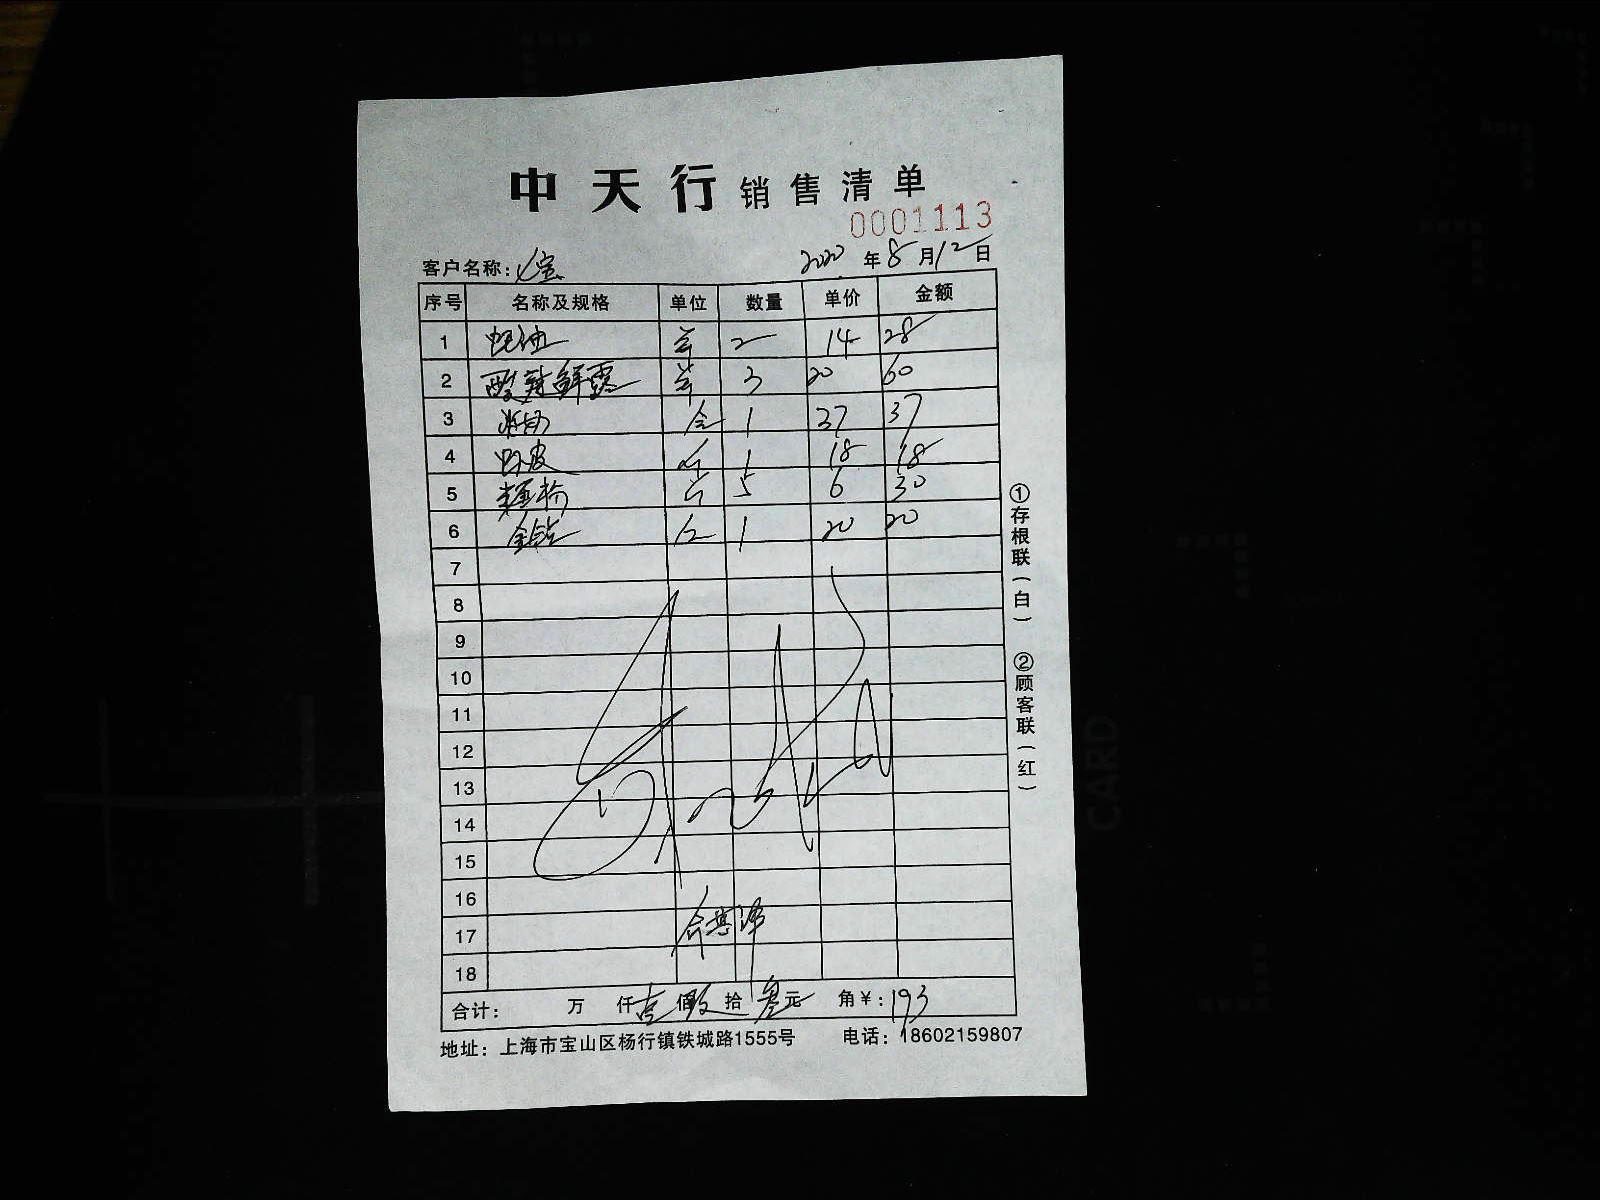 中天行 销售清单
0001113
客户名称: 宝 2020 年 8 月 12 日
序号 名称及规格 单位 数量 单价 金额
1 蚝油 二 14 28
2 酸辣鲜露 3 20 60
3 1 37 37
4 虾皮 1 18 18
5 5 6 30
6 金钻 1 20 20
7
8
9
10
11
12
13
14
15
16
17
18
合计: 万 仟 壹 佰 玖 拾 叁 元 角 ¥: 193
地址: 上海市宝山区杨行镇铁城路1555号 电话: 18602159807
①存根联(白) ②顾客联(红)
CARD